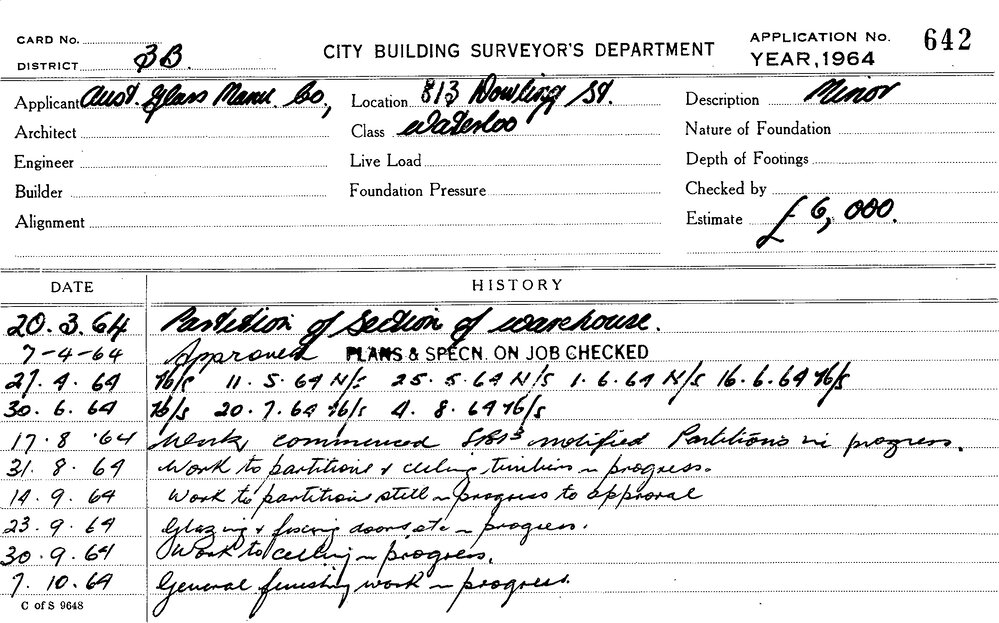 CARD No.
DISTRICT 3B
CITY BUILDING SURVEYOR'S DEPARTMENT
APPLICATION No. 642
YEAR, 1964
Applicant Aust. Glass Manu Co, Location 813 Dowling St. Description Minor
Architect Class Waterloo Nature of Foundation
Engineer Live Load Depth of Footings
Builder Foundation Pressure Checked by
Alignment Estimate £ 6,000.
DATE HISTORY
20.3.64 Partition of Section of warehouse.
7-4-64 Approved PLANS & SPECN. ON JOB CHECKED
27.4.64 N/S 11.5.64 N/S 25.5.64 N/S 1.6.64 N/S 16.6.64 N/S
30.6.64 N/S 20.7.64 N/S 4.8.64 N/S
17.8.'64 Work commenced notified Partitions in progress.
31.8.64 Work to partitions & ceiling timbers in progress.
14.9.64 Work to partitions still in progress to approval
23.9.64 Glazing & fixing doors etc in progress.
30.9.64 Work to ceiling in progress.
7.10.64 General finishing work in progress.
C of S 9648